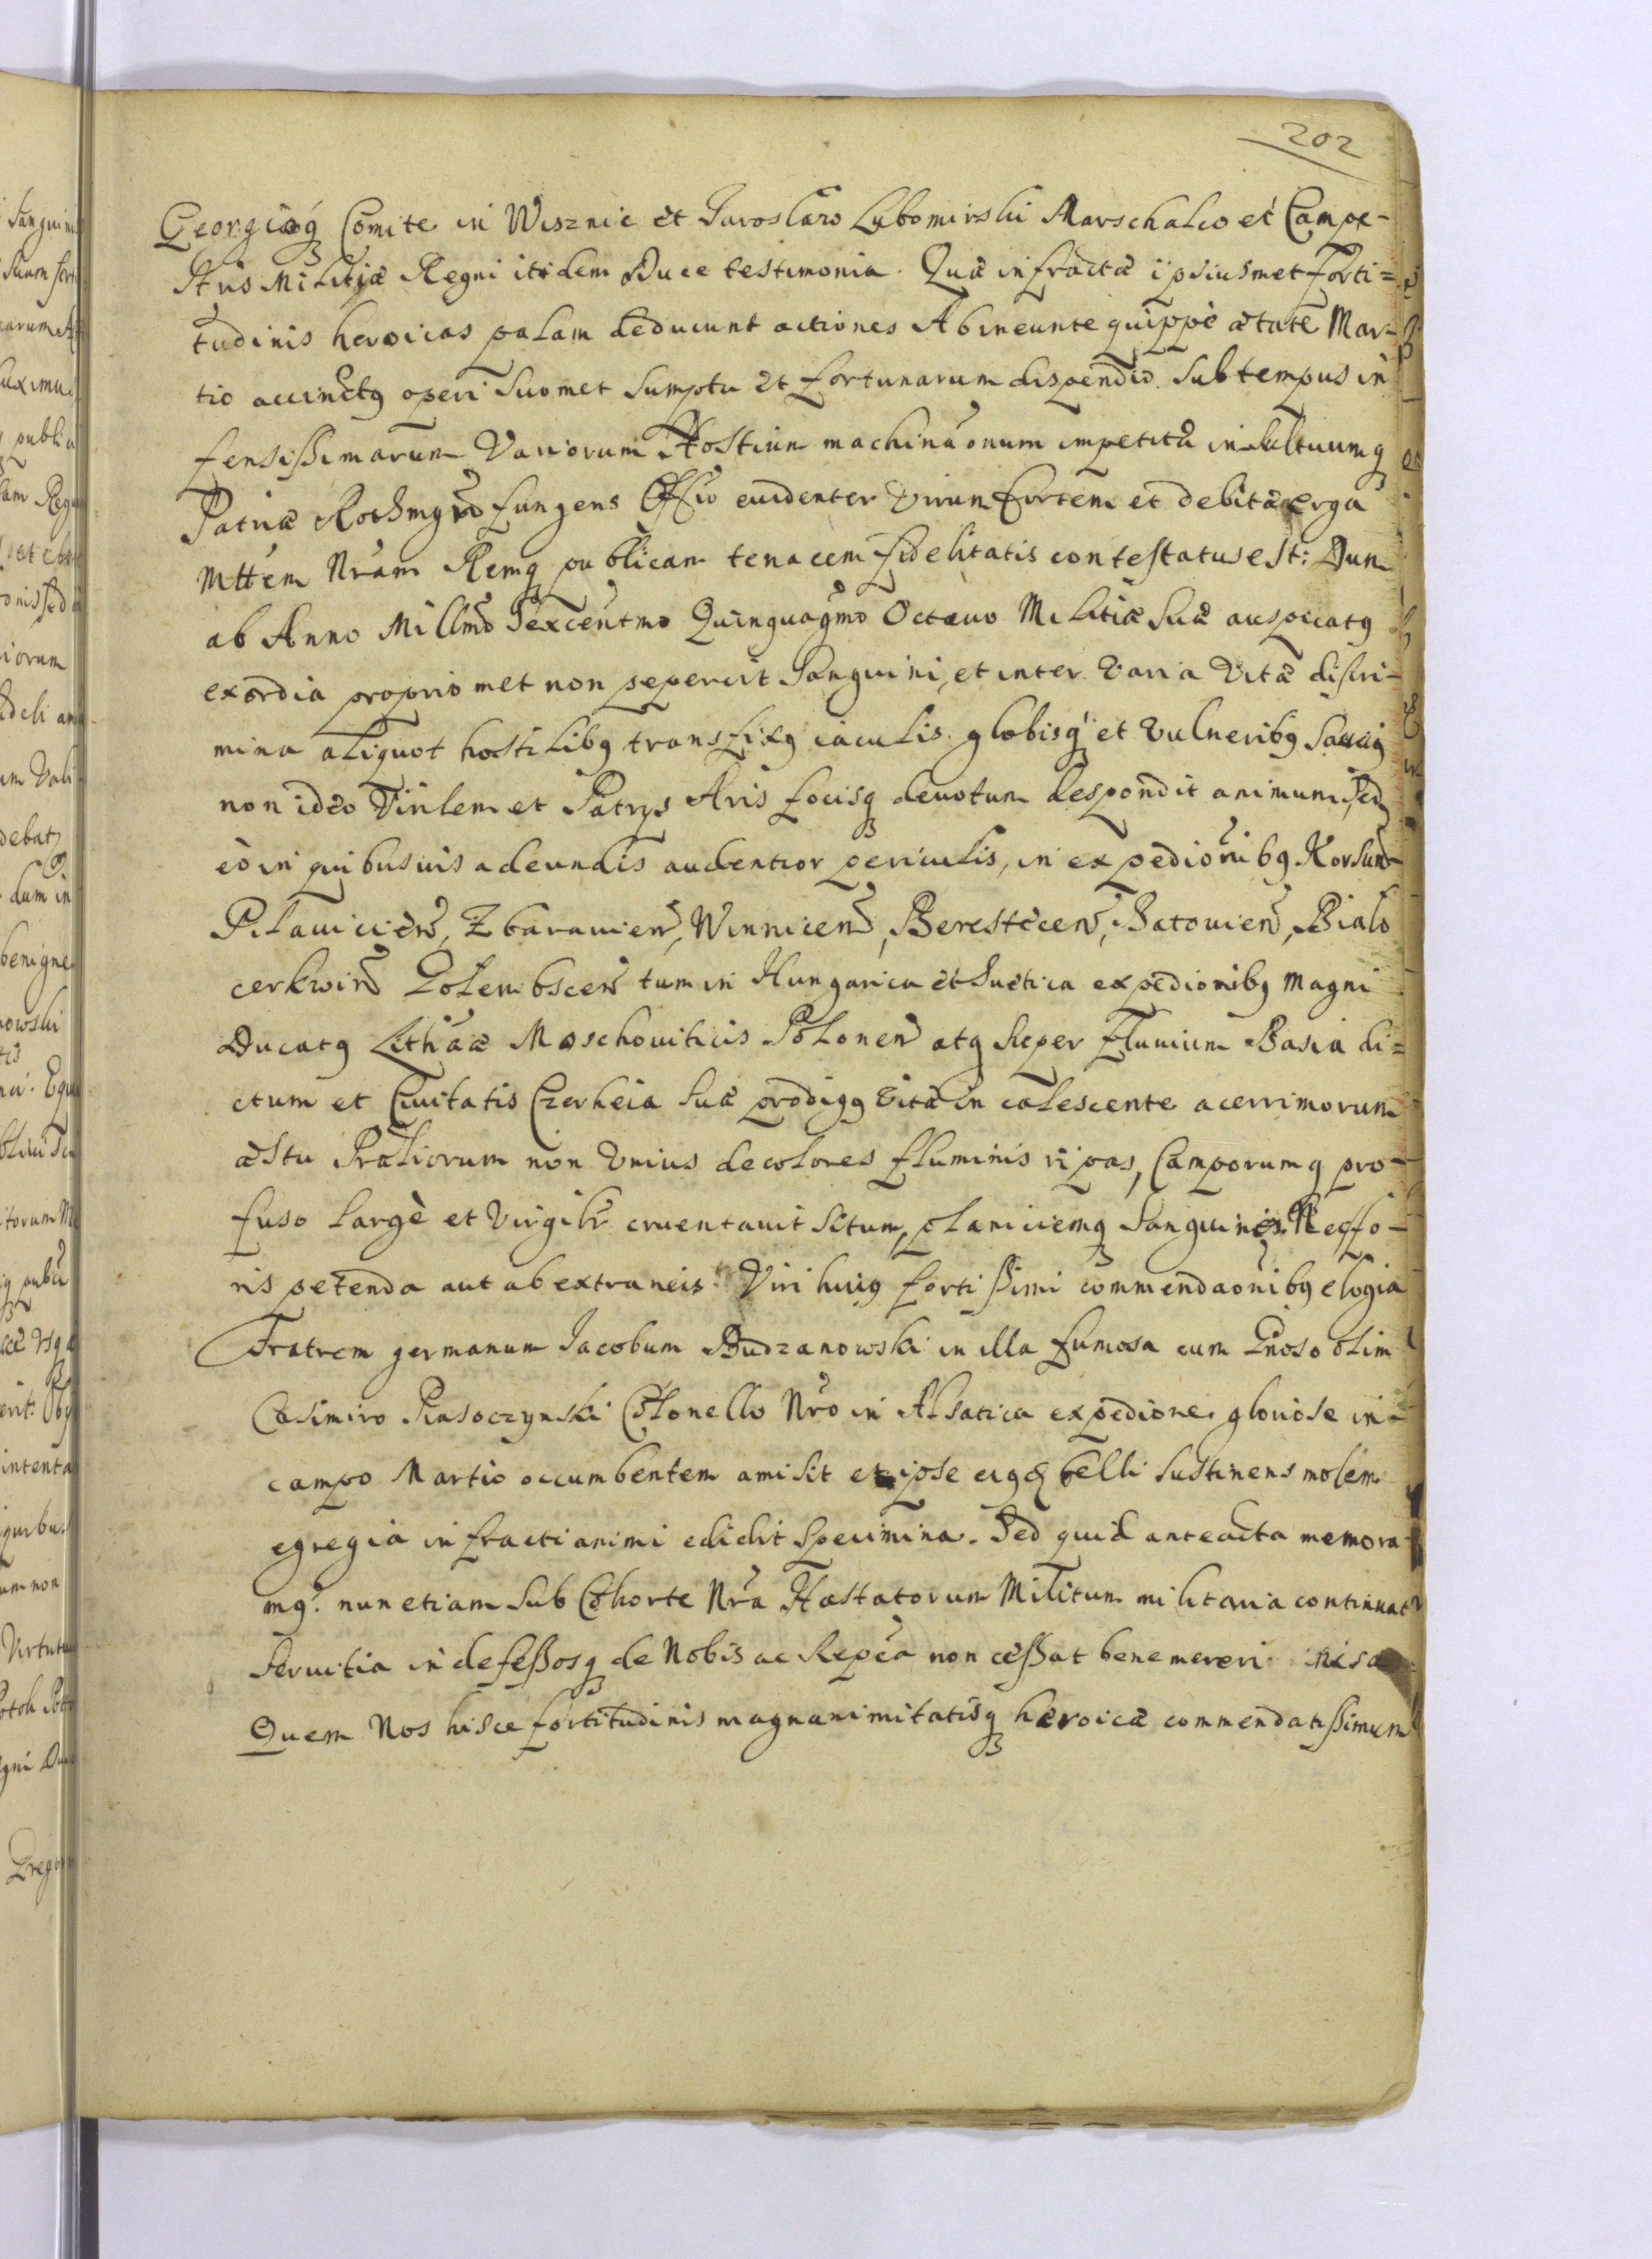 202
Georgioq Comite in Wisznic et Iaroslaw Lubomirski Marschalco et Campe-
stris Militiæ Regni itidem Duce testimonia. Quæ infractæ ipsiusmet forti=
tudinis heroicas palam deducunt actiones Ab ineunte quippè ætate Mar-
tio accinctq operi suomet sumptu et fortunarum dispendio. Sub tempus in
fensißimarum Variorum Hostium machinaonum impetitæ insultuumq
Patriæ Rothmgro fungens Offio euidenter Virum fortem et debitæ erga
Mttem Nram Remq publicam tenacem fidelitatis contestatus est: Dum
ab Anno Millmo Sexcentmo Quinquagmo Octauo Militiæ suæ auspicatq
exordia propriomet non pepercit Sanguini, et inter varia Vitæ discri-
mina aliquot hostilibq transfixq iaculis globisq et Vulneribq Sauciq
non ideo Virilem et Patrys Aris focisq deuotum despondit animum, Sed
eò in quibusuis adeundis audentior periculis, in expedionibq Korsun
Pilauicien, Zbarauien, Winnicen, Berestecen, Batouien, Bialo
cerkwin Golembscen tum in Hungarica et Suetica expedionibq Magni
Ducatq Lithaæ Moschouiticis Polonen atq Super Fluuium Basia di=
ctum et Ciuitatis Czerheia suæ prodigq vitæ in calescente acerrimorum
æstu Præliorum non Vnius decolores fluminis ripas, Camporumq pro-
fuso largè et Virgilr cruentauit situm, planiciemq Sanguine. Nec fo-
ris petenda aut ab extraneis Viri huiq fortißimi commendaonibq elogia
Fratrem germanum Iacobum Budzanowski in illa fumosa cum Gnoso olim
Casimiro Piasoczynski Colonello Nro in Alsatica expedione gloriose in
campo Martio occumbentem amisit et ipse belli sustinens molem
egregia infracti animi edidit specimina. Sed quid anteacta memora
mq? nunetiam sub Cohorte Nra Hastatorum Militum militaria continuat
Seruitia indefeßosq de Nobis ac Repca non ceßat benemereri
Quem Nos hisce fortitudinis magnanimitatisq heroicæ commendatißimum